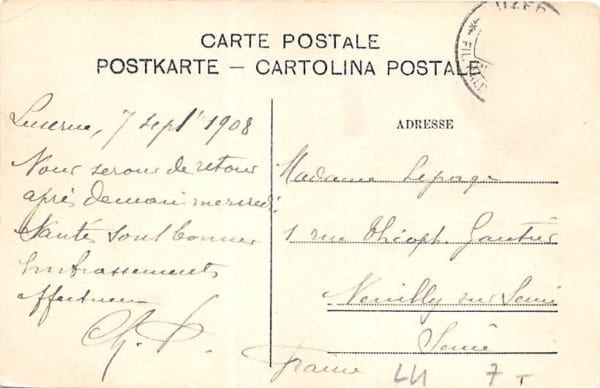 CARTE POSTALE
POSTKARTE – CARTOLINA POSTALE
ADRESSE
Lucerne, 7 sept 1908
Nous serons de retour
après demain mercredi.
Santés sont bonnes
Embrassements
affectueux
Ch. P.
Madame Lepage
1 rue Théoph. Gautier
Neuilly sur Seine
Seine
France
LU 7
FIL